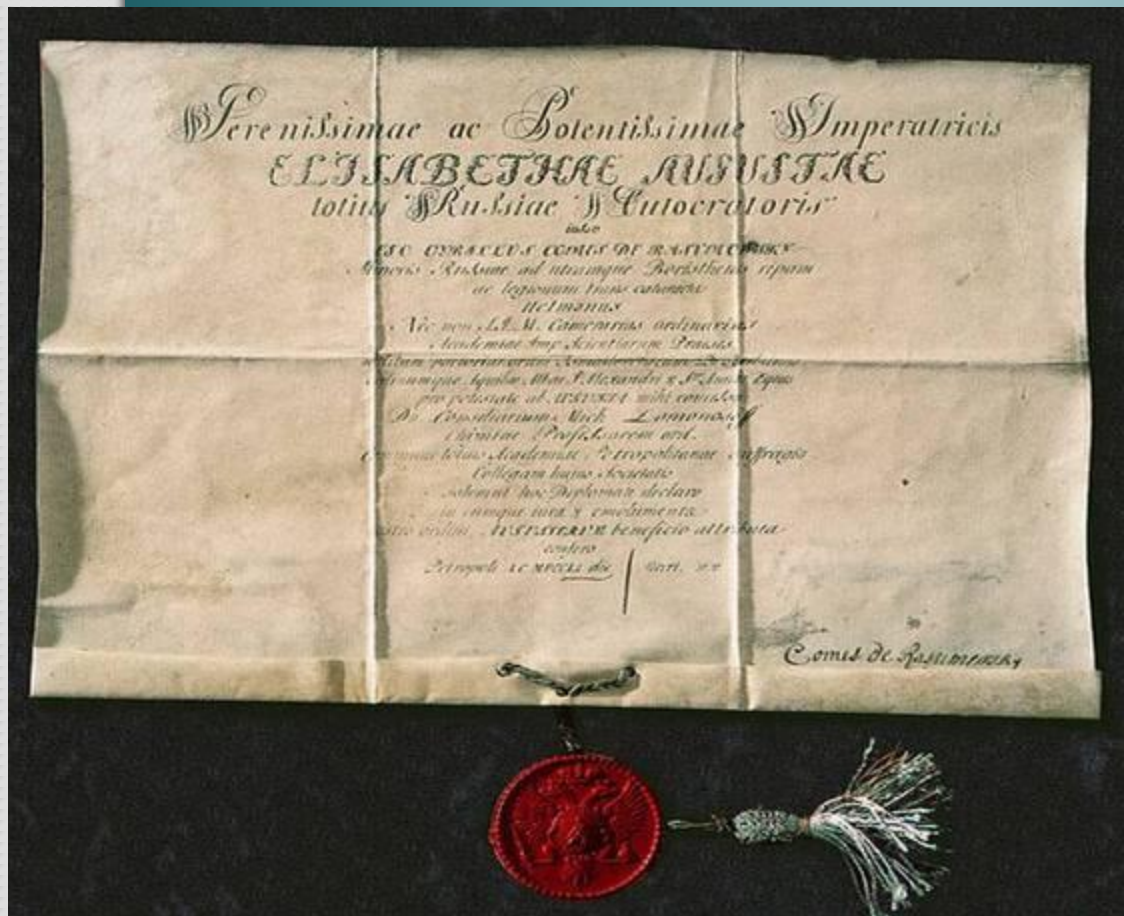 Serenissimae ac Potentissimae Imperatricis
ELISABETHAE AUGUSTAE
totius Russiae Autocratoris
iussu
EGO CYRILLUS COMES DE RASUMOWSKY
Minoris Russiae ad utramque Boristhenis ripam
ac legionum trans cataractas
Hetmanus
Nec non S.I.M. Camerarius ordinarius
Academiae Imp. Scientiarum Praeses
Aquilae Albae S. Alexandri & Sae Annae Eques
pro potestate ab AUGUSTA mihi concessa
Dn. Consiliarium Mich. Lomonosoff
Chimiae Professorem ord.
communi totius Academiae Petropolitanae suffragio
Collegam huius Societatis
solemni hoc Diplomate declaro
in eumque iura & emolumenta
ordini AUGUSTAE beneficio attributa
confero
Petropoli die
Comes de Rasumowsky